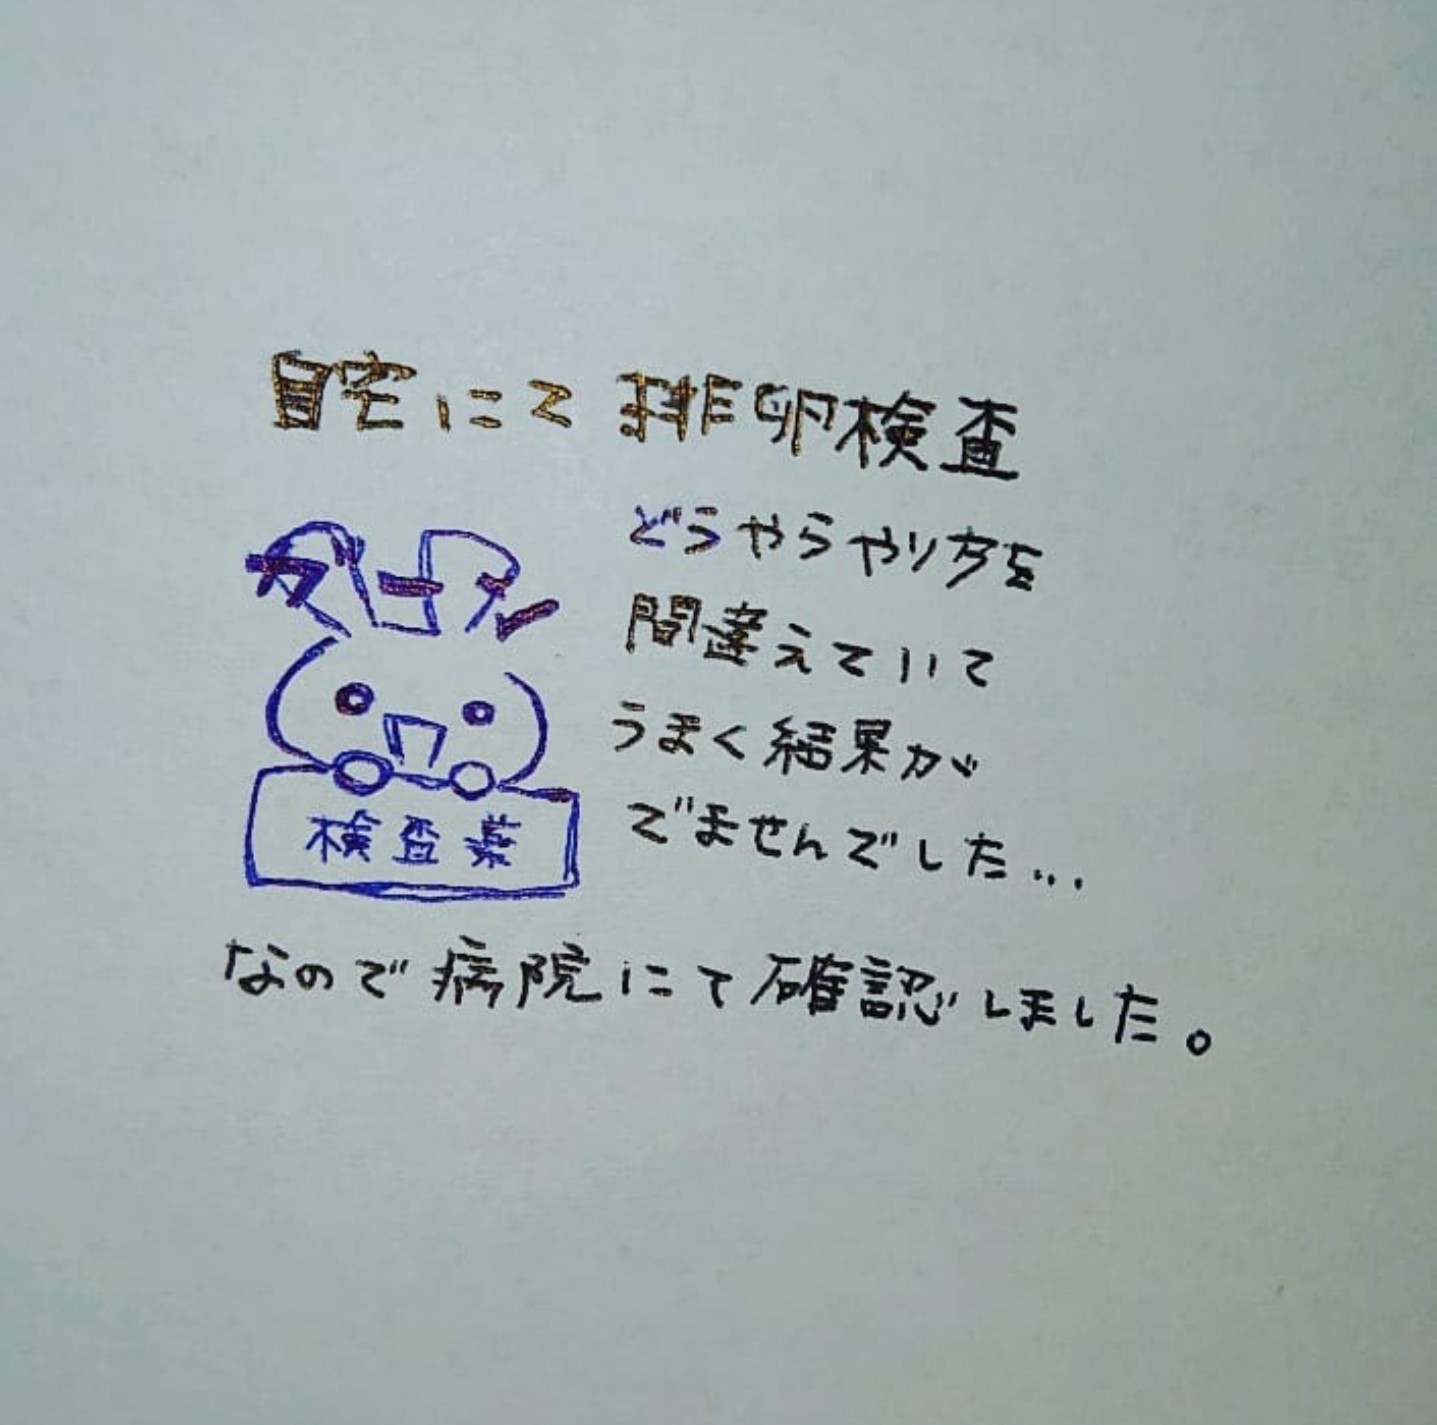 自宅にて排卵検査
どうやらやり方を
間違えていて
うまく結果が
でませんでした...
検査薬
なので病院にて確認しました。